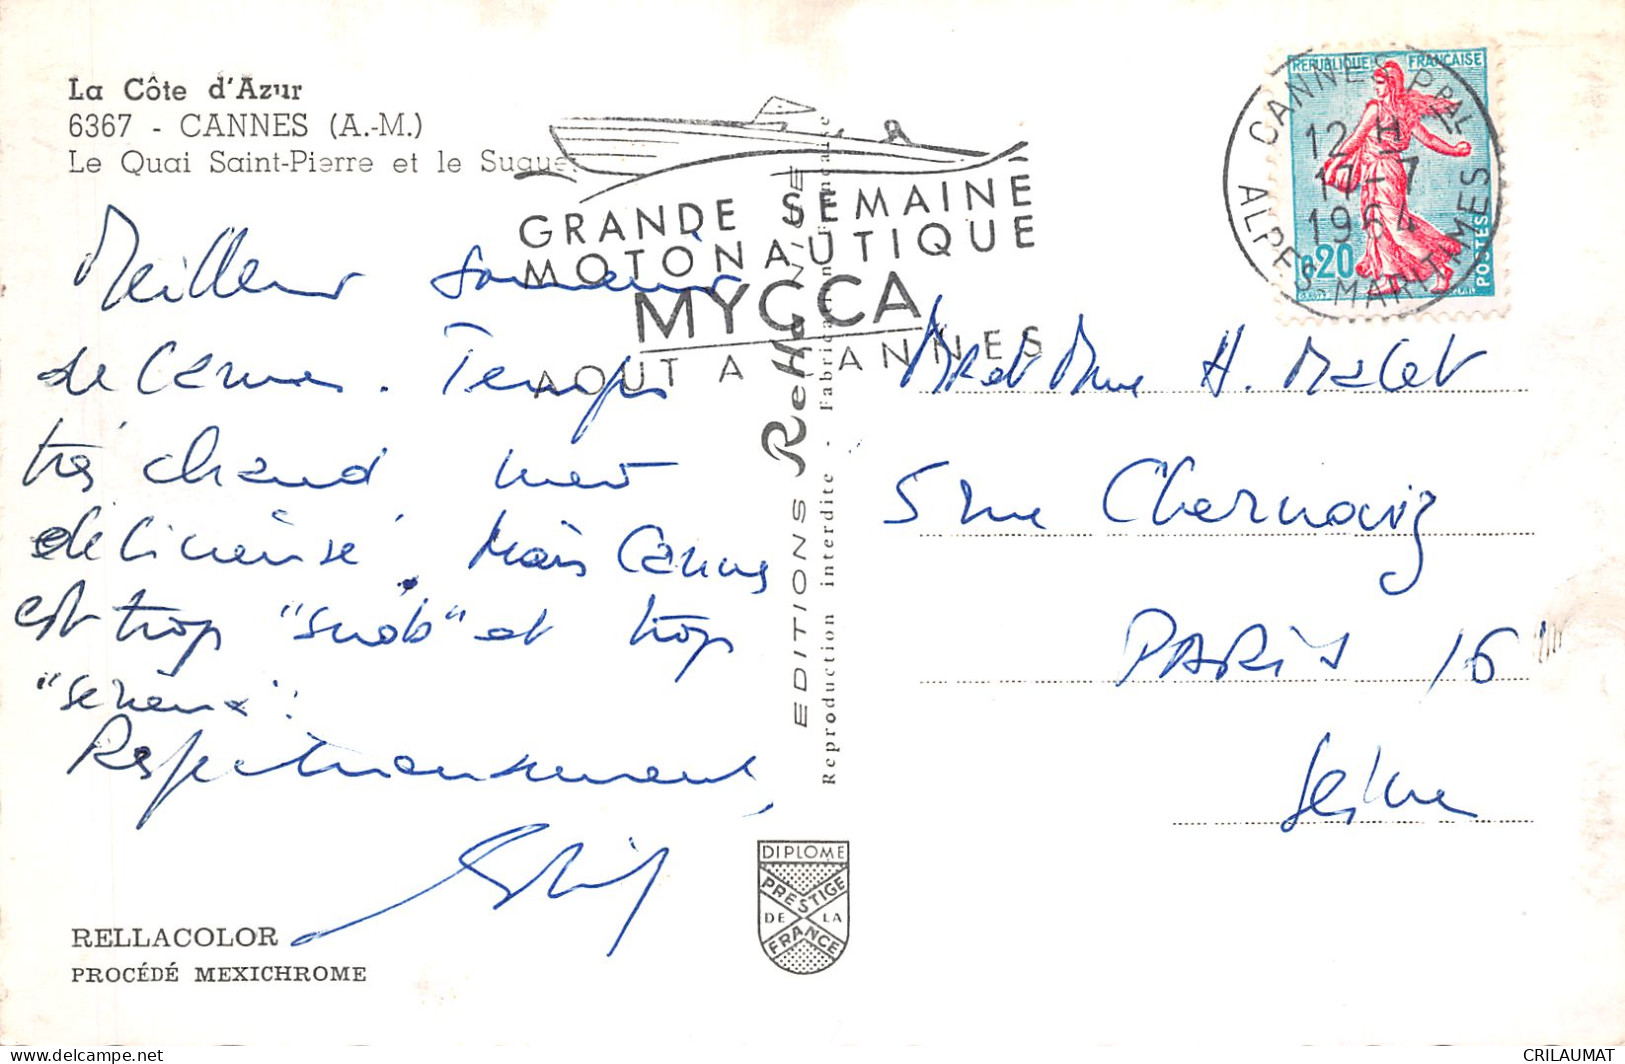 La Côte d'Azur
6367 - CANNES (A.-M.)
Le Quai Saint-Pierre et le Suquet
GRANDE SEMAINE
MOTONAUTIQUE
MYCCA
AOUT A CANNES
CANNES PPAL
12 H
17-7
1964
ALPES-MARITIMES
REPUBLIQUE FRANÇAISE
0,20
POSTES
Meilleur souvenir
de Cannes. Temps
très chaud, mer
délicieuse. Mais Cannes
est trop "snob" et trop
"sérieux".
Respectueusement,
M et Mme H. Malet
5 rue Chernoviz
PARIS 16
Seine
EDITIONS Rella NICE
Reproduction interdite - Fabrication Française
DIPLOME
PRESTIGE
DE LA
FRANCE
RELLACOLOR
PROCÉDÉ MEXICHROME
CRILAUMAT